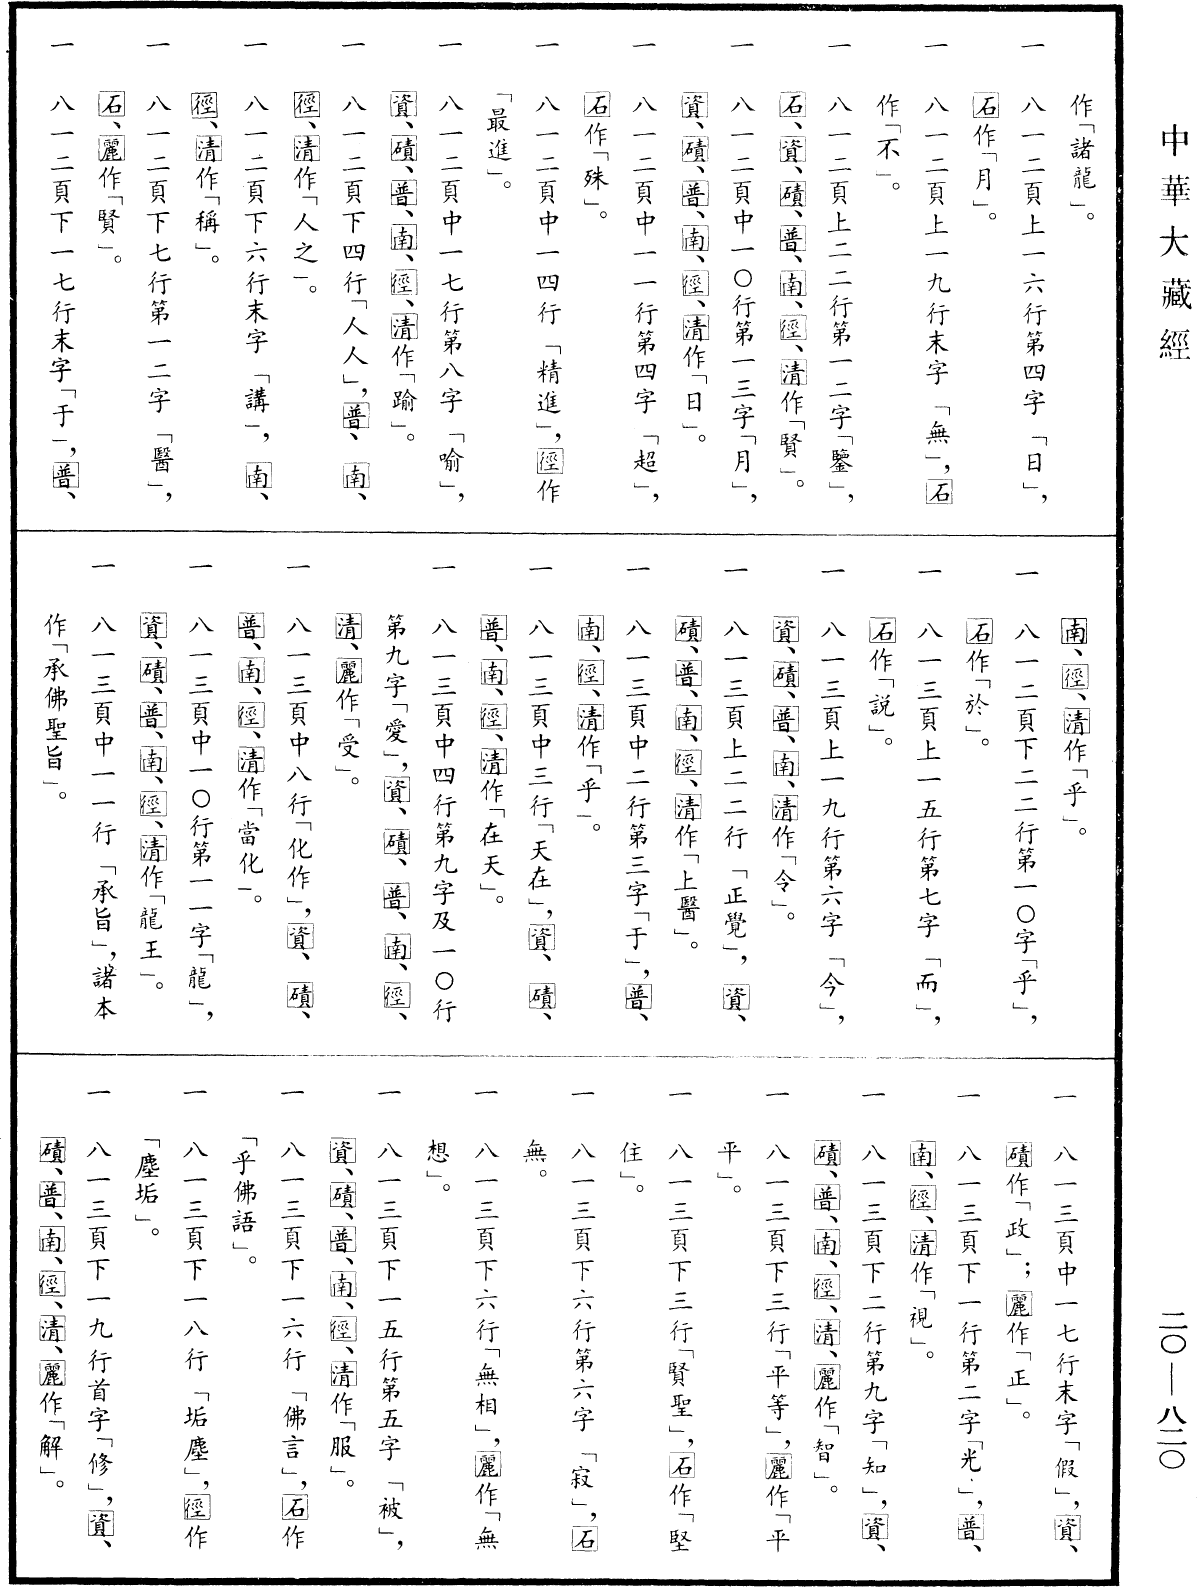 中華大藏經
作「諸龍」。
一 八一二頁上一六行第四字「日」，
石作「月」。
一 八一二頁上一九行末字「無」，石
作「不」。
一 八一二頁上二二行第一二字「鑒」，
石、資、磧、普、南、徑、清作「賢」。
一 八一二頁中一〇行第一三字「月」，
資、磧、普、南、徑、清作「日」。
一 八一二頁中一一行第四字「超」，
石作「殊」。
一 八一二頁中一四行「精進」，徑作
「最進」。
一 八一二頁中一七行第八字「喻」，
資、磧、普、南、徑、清作「踰」。
一 八一二頁下四行「人人」，普、南、
徑、清作「人之」。
一 八一二頁下六行末字「講」，南、
徑、清作「稱」。
一 八一二頁下七行第一二字「醫」，
石、麗作「賢」。
一 八一二頁下一七行末字「于」，普、
南、徑、清作「乎」。
一 八一二頁下二二行第一〇字「乎」，
石作「於」。
一 八一三頁上一五行第七字「而」，
石作「説」。
一 八一三頁上一九行第六字「今」，
資、磧、普、南、清作「令」。
一 八一三頁上二二行「正覺」，資、
磧、普、南、徑、清作「上醫」。
一 八一三頁中二行第三字「于」，普、
南、徑、清作「乎」。
一 八一三頁中三行「天在」，資、磧、
普、南、徑、清作「在天」。
一 八一三頁中四行第九字及一〇行
第九字「愛」，資、磧、普、南、徑、
清、麗作「受」。
一 八一三頁中八行「化作」，資、磧、
普、南、徑、清作「當化」。
一 八一三頁中一〇行第一一字「龍」，
資、磧、普、南、徑、清作「龍王」。
一 八一三頁中一一行「承旨」，諸本
作「承佛聖旨」。
一 八一三頁中一七行末字「假」，資、
磧作「政」；麗作「正」。
一 八一三頁下一行第二字「光」，普、
南、徑、清作「視」。
一 八一三頁下二行第九字「知」，資、
磧、普、南、徑、清、麗作「智」。
一 八一三頁下三行「平等」，麗作「平
平」。
一 八一三頁下三行「賢聖」，石作「堅
住」。
一 八一三頁下六行第六字「寂」，石
無。
一 八一三頁下六行「無相」，麗作「無
想」。
一 八一三頁下一五行第五字「被」，
資、磧、普、南、徑、清作「服」。
一 八一三頁下一六行「佛言」，石作
「乎佛語」。
一 八一三頁下一八行「垢塵」，徑作
「塵垢」。
一 八一三頁下一九行首字「修」，資、
磧、普、南、徑、清、麗作「解」。
二〇—八二〇